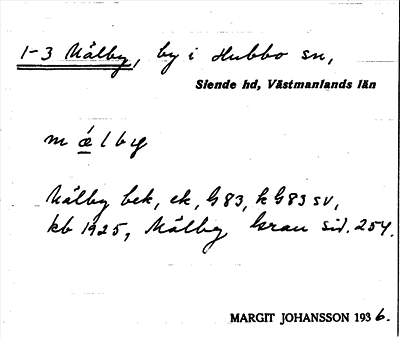 1-3 Målby, by i Hubbo sn,
Siende hd, Västmanlands län
m ǽ l b y
Målby bek, ek, G83, k G83 sv,
kb 1925, Målby Gran sid. 254.
MARGIT JOHANSSON 1936.